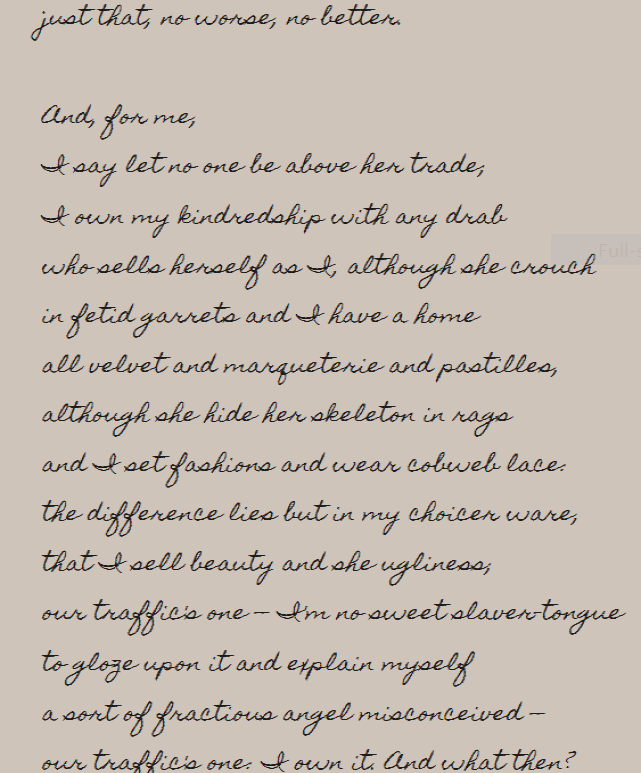 just that, no worse, no better.
And, for me,
I say let no one be above her trade;
I own my kindredship with any drab
who sells herself as I, although she crouch
in fetid garrets and I have a home
all velvet and marqueterie and pastilles,
although she hide her skeleton in rags
and I set fashions and wear cobweb lace:
the difference lies but in my choicer ware,
that I sell beauty and she ugliness;
our traffic's one – I'm no sweet slaver-tongue
to gloze upon it and explain myself
a sort of fractious angel misconceived –
our traffic's one: I own it. And what then?
Full-s